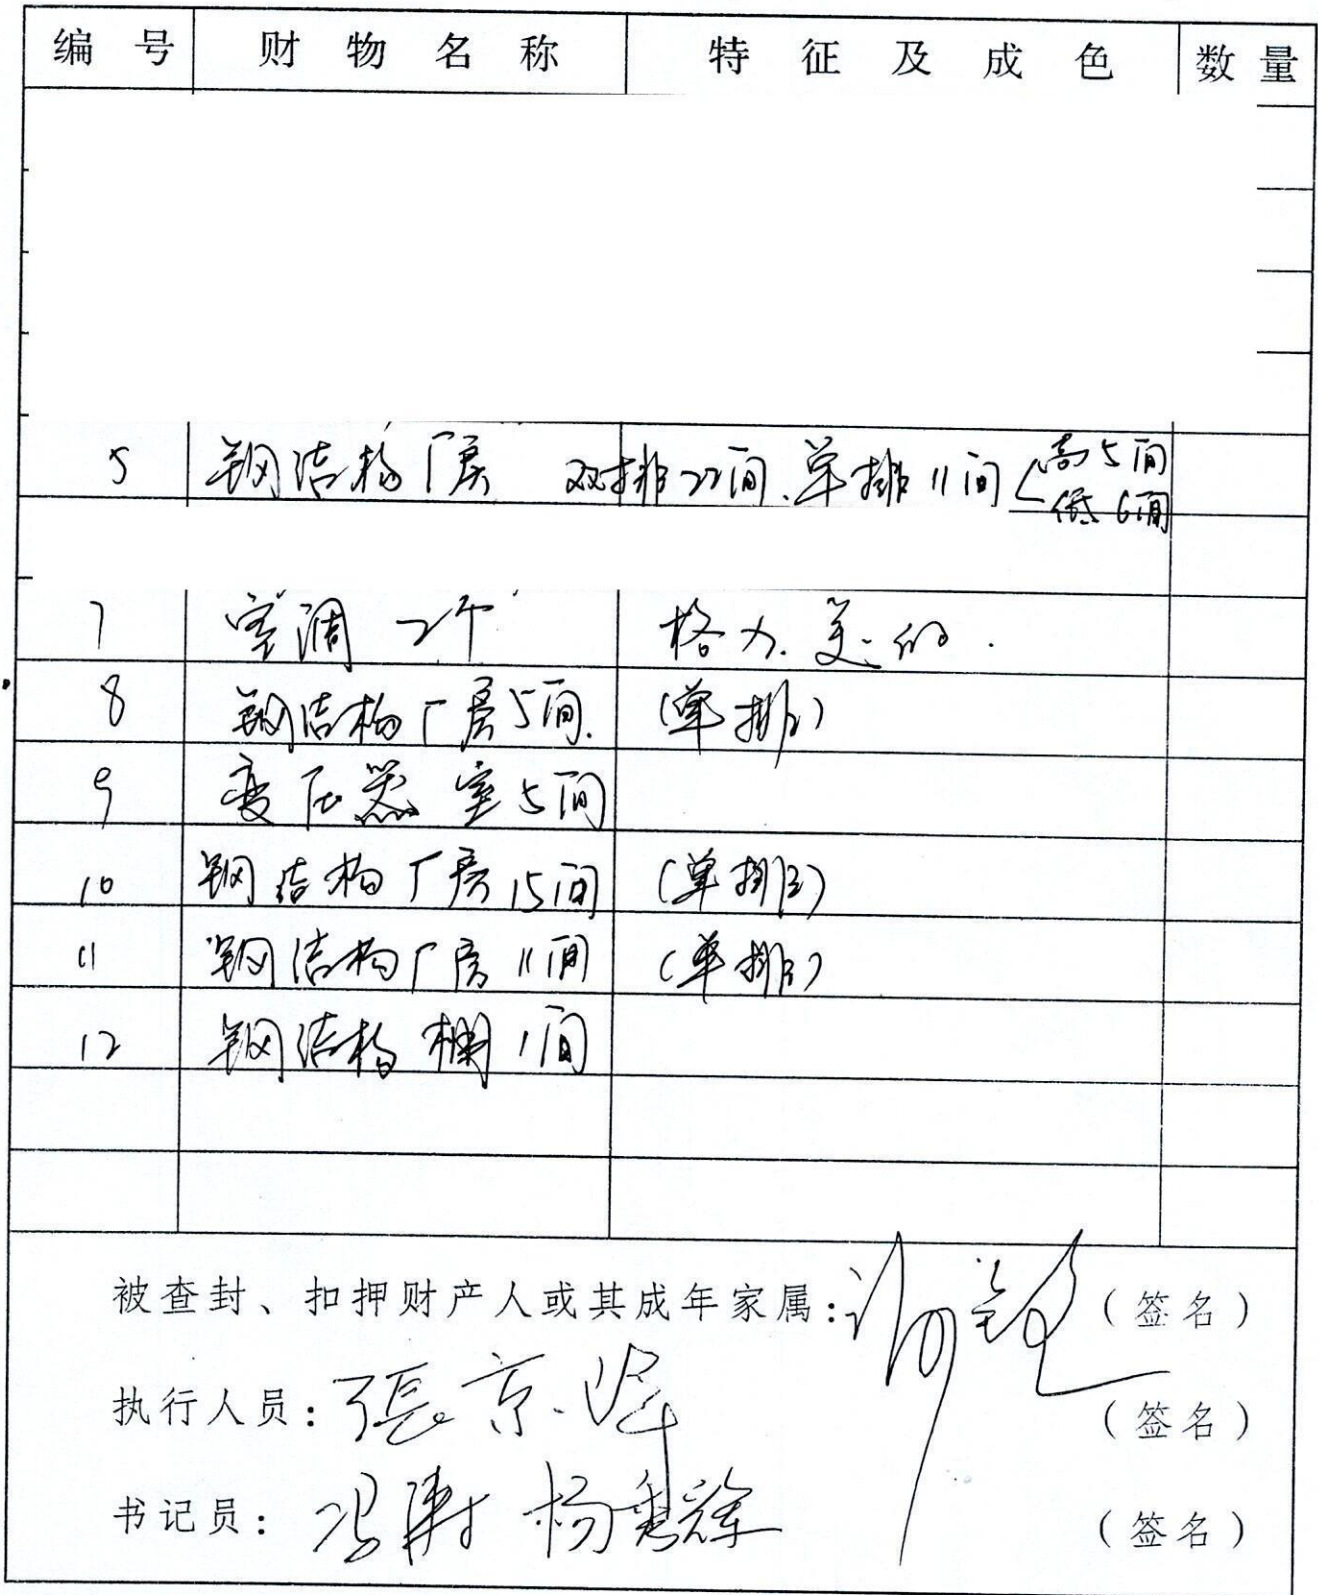 编号 财物名称 特征及成色 数量
5 钢结构厂房 双排22间、单排11间 高5间
低6间
7 空调 2个 格力、美的.
8 钢结构厂房5间. (单排)
9 变压器室5间
10 钢结构厂房15间 (单排)
11 钢结构厂房11间 (单排)
12 钢结构棚1间
被查封、扣押财产人或其成年家属: (签名)
执行人员:張京 (签名)
书记员: 杨 (签名)